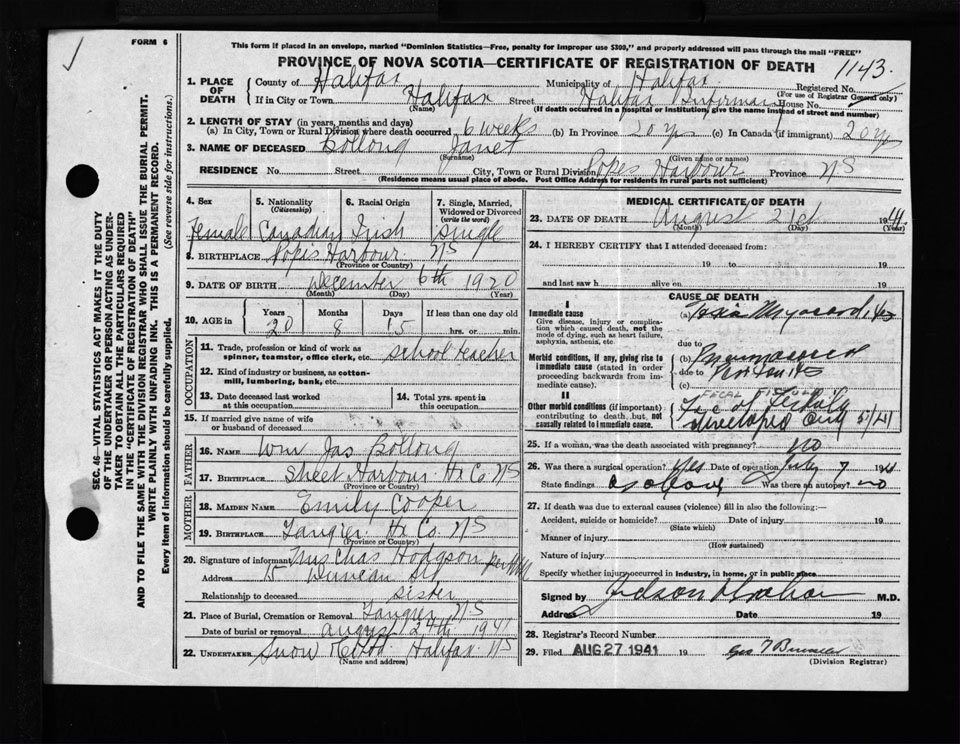 FORM 6
This form if placed in an envelope, marked "Dominion Statistics—Free, penalty for improper use $300," and properly addressed will pass through the mail "FREE"
PROVINCE OF NOVA SCOTIA—CERTIFICATE OF REGISTRATION OF DEATH 1143
SEC. 46—VITAL STATISTICS ACT MAKES IT THE DUTY
OF THE UNDERTAKER OR PERSON ACTING AS UNDER-
TAKER TO OBTAIN ALL THE PARTICULARS REQUIRED
IN THE "CERTIFICATE OF REGISTRATION OF DEATH"
AND TO FILE THE SAME WITH THE DIVISION REGISTRAR WHO SHALL ISSUE THE BURIAL PERMIT.
WRITE PLAINLY WITH UNFADING INK. THIS IS A PERMANENT RECORD.
Every item of information should be carefully supplied. (See reverse side for instructions.)
1. PLACE OF DEATH County of Halifax Municipality of Halifax Registered No.
(For use of Registrar General only)
If in City or Town Halifax Street Halifax Infirmary House No.
(Name) (If death occurred in a hospital or institution, give the name instead of street and number)
2. LENGTH OF STAY (in years, months and days)
(a) In City, Town or Rural Division where death occurred 6 weeks (b) In Province 20 y (c) In Canada (if immigrant) 20 y
3. NAME OF DECEASED Bollong Janet
(Surname) (Given name or names)
RESIDENCE No. Street City, Town or Rural Division Popes Harbour Province NS
(Residence means usual place of abode. Post Office Address for residents in rural parts not sufficient)
4. Sex 5. Nationality (Citizenship) 6. Racial Origin 7. Single, Married, Widowed or Divorced (write the word)
Female Canadian Irish Single
8. BIRTHPLACE Popes Harbour NS
(Province or Country)
9. DATE OF BIRTH December 6th 1920
(Month) (Day) (Year)
10. AGE in Years Months Days If less than one day old
20 8 15 hrs. or min.
OCCUPATION
11. Trade, profession or kind of work as spinner, teamster, office clerk, etc. School teacher
12. Kind of industry or business, as cotton-mill, lumbering, bank, etc.
13. Date deceased last worked at this occupation
14. Total yrs. spent in this occupation
15. If married give name of wife or husband of deceased
FATHER
16. NAME Wm Jas Bollong
17. BIRTHPLACE Sheet Harbour Hx Co NS
(Province or Country)
MOTHER
18. MAIDEN NAME Emily Cooper
19. BIRTHPLACE Tangier Hx Co. NS
(Province or Country)
20. Signature of informant Mrs Chas Hodgson
Address 15 Duncan St
Relationship to deceased sister
21. Place of Burial, Cremation or Removal Tangier NS
Date of burial or removal August 24th 1941
22. UNDERTAKER Snow Halifax NS
(Name and address)
MEDICAL CERTIFICATE OF DEATH
23. DATE OF DEATH August 21st 1941
(Month) (Day) (Year)
24. I HEREBY CERTIFY that I attended deceased from:
19 to 19
and last saw h alive on 19
CAUSE OF DEATH
I
Immediate cause
Give disease, injury or complication which caused death, not the mode of dying, such as heart failure, asphyxia, asthenia, etc.
(a) Toxic Myocarditis
due to
Morbid conditions, if any, giving rise to immediate cause (stated in order proceeding backwards from immediate cause).
(b)
due to
(c)
II
Other morbid conditions (if important) contributing to death, but not causally related to immediate cause.
FECAL FISTULA
developed
25. If a woman, was the death associated with pregnancy? no
26. Was there a surgical operation? Yes Date of operation July 7 1941
State findings as above Was there an autopsy? no
27. If death was due to external causes (violence) fill in also the following:—
Accident, suicide or homicide? Date of injury 19
(State which)
Manner of injury
(How sustained)
Nature of injury
Specify whether injured in industry, in home, or in public place
Signed by M.D.
Address Date 19
28. Registrar's Record Number
29. Filed AUG 27 1941 19
(Division Registrar)